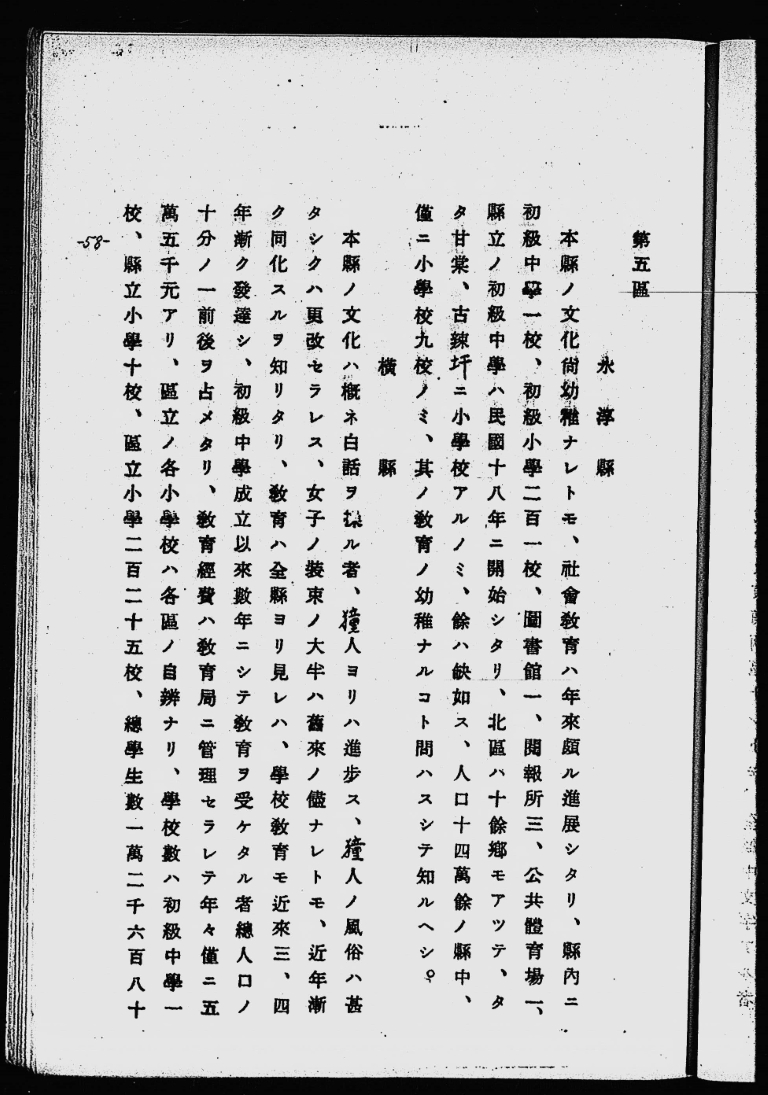 第五區
永淳縣
本縣ノ文化尙幼稚ナレトモ、社會敎育ハ年來頗ル進展シタリ、縣內ニ
初級中學一校、初級小學二百一校、圖書館一、閱報所三、公共體育場一、
縣立ノ初級中學ハ民國十八年ニ開始シタリ、北區ハ十餘鄕モアツテ、タ
タ甘棠、古辣圩ニ小學校アルノミ、餘ハ缺如ス、人口十四萬餘ノ縣中、
僅ニ小學校九校ノミ、其ノ敎育ノ幼稚ナルコト問ハスシテ知ルヘシ。
橫縣
本縣ノ文化ハ槪ネ白話ヲ操ル者、獞人ヨリハ進步ス、獞人ノ風俗ハ甚
タシクハ更改セラレス、女子ノ裝束ノ大半ハ舊來ノ儘ナレトモ、近年漸
ク同化スルヲ知リタリ、敎育ハ全縣ヨリ見レハ、學校敎育モ近來三、四
年漸ク發達シ、初級中學成立以來數年ニシテ敎育ヲ受ケタル者總人口ノ
十分ノ一前後ヲ占メタリ、敎育經費ハ敎育局ニ管理セラレテ年々僅ニ五
萬五千元アリ、區立ノ各小學校ハ各區ノ自辨ナリ、學校數ハ初級中學一
校、縣立小學十校、區立小學二百二十五校、總學生數一萬二千六百八十
-58-